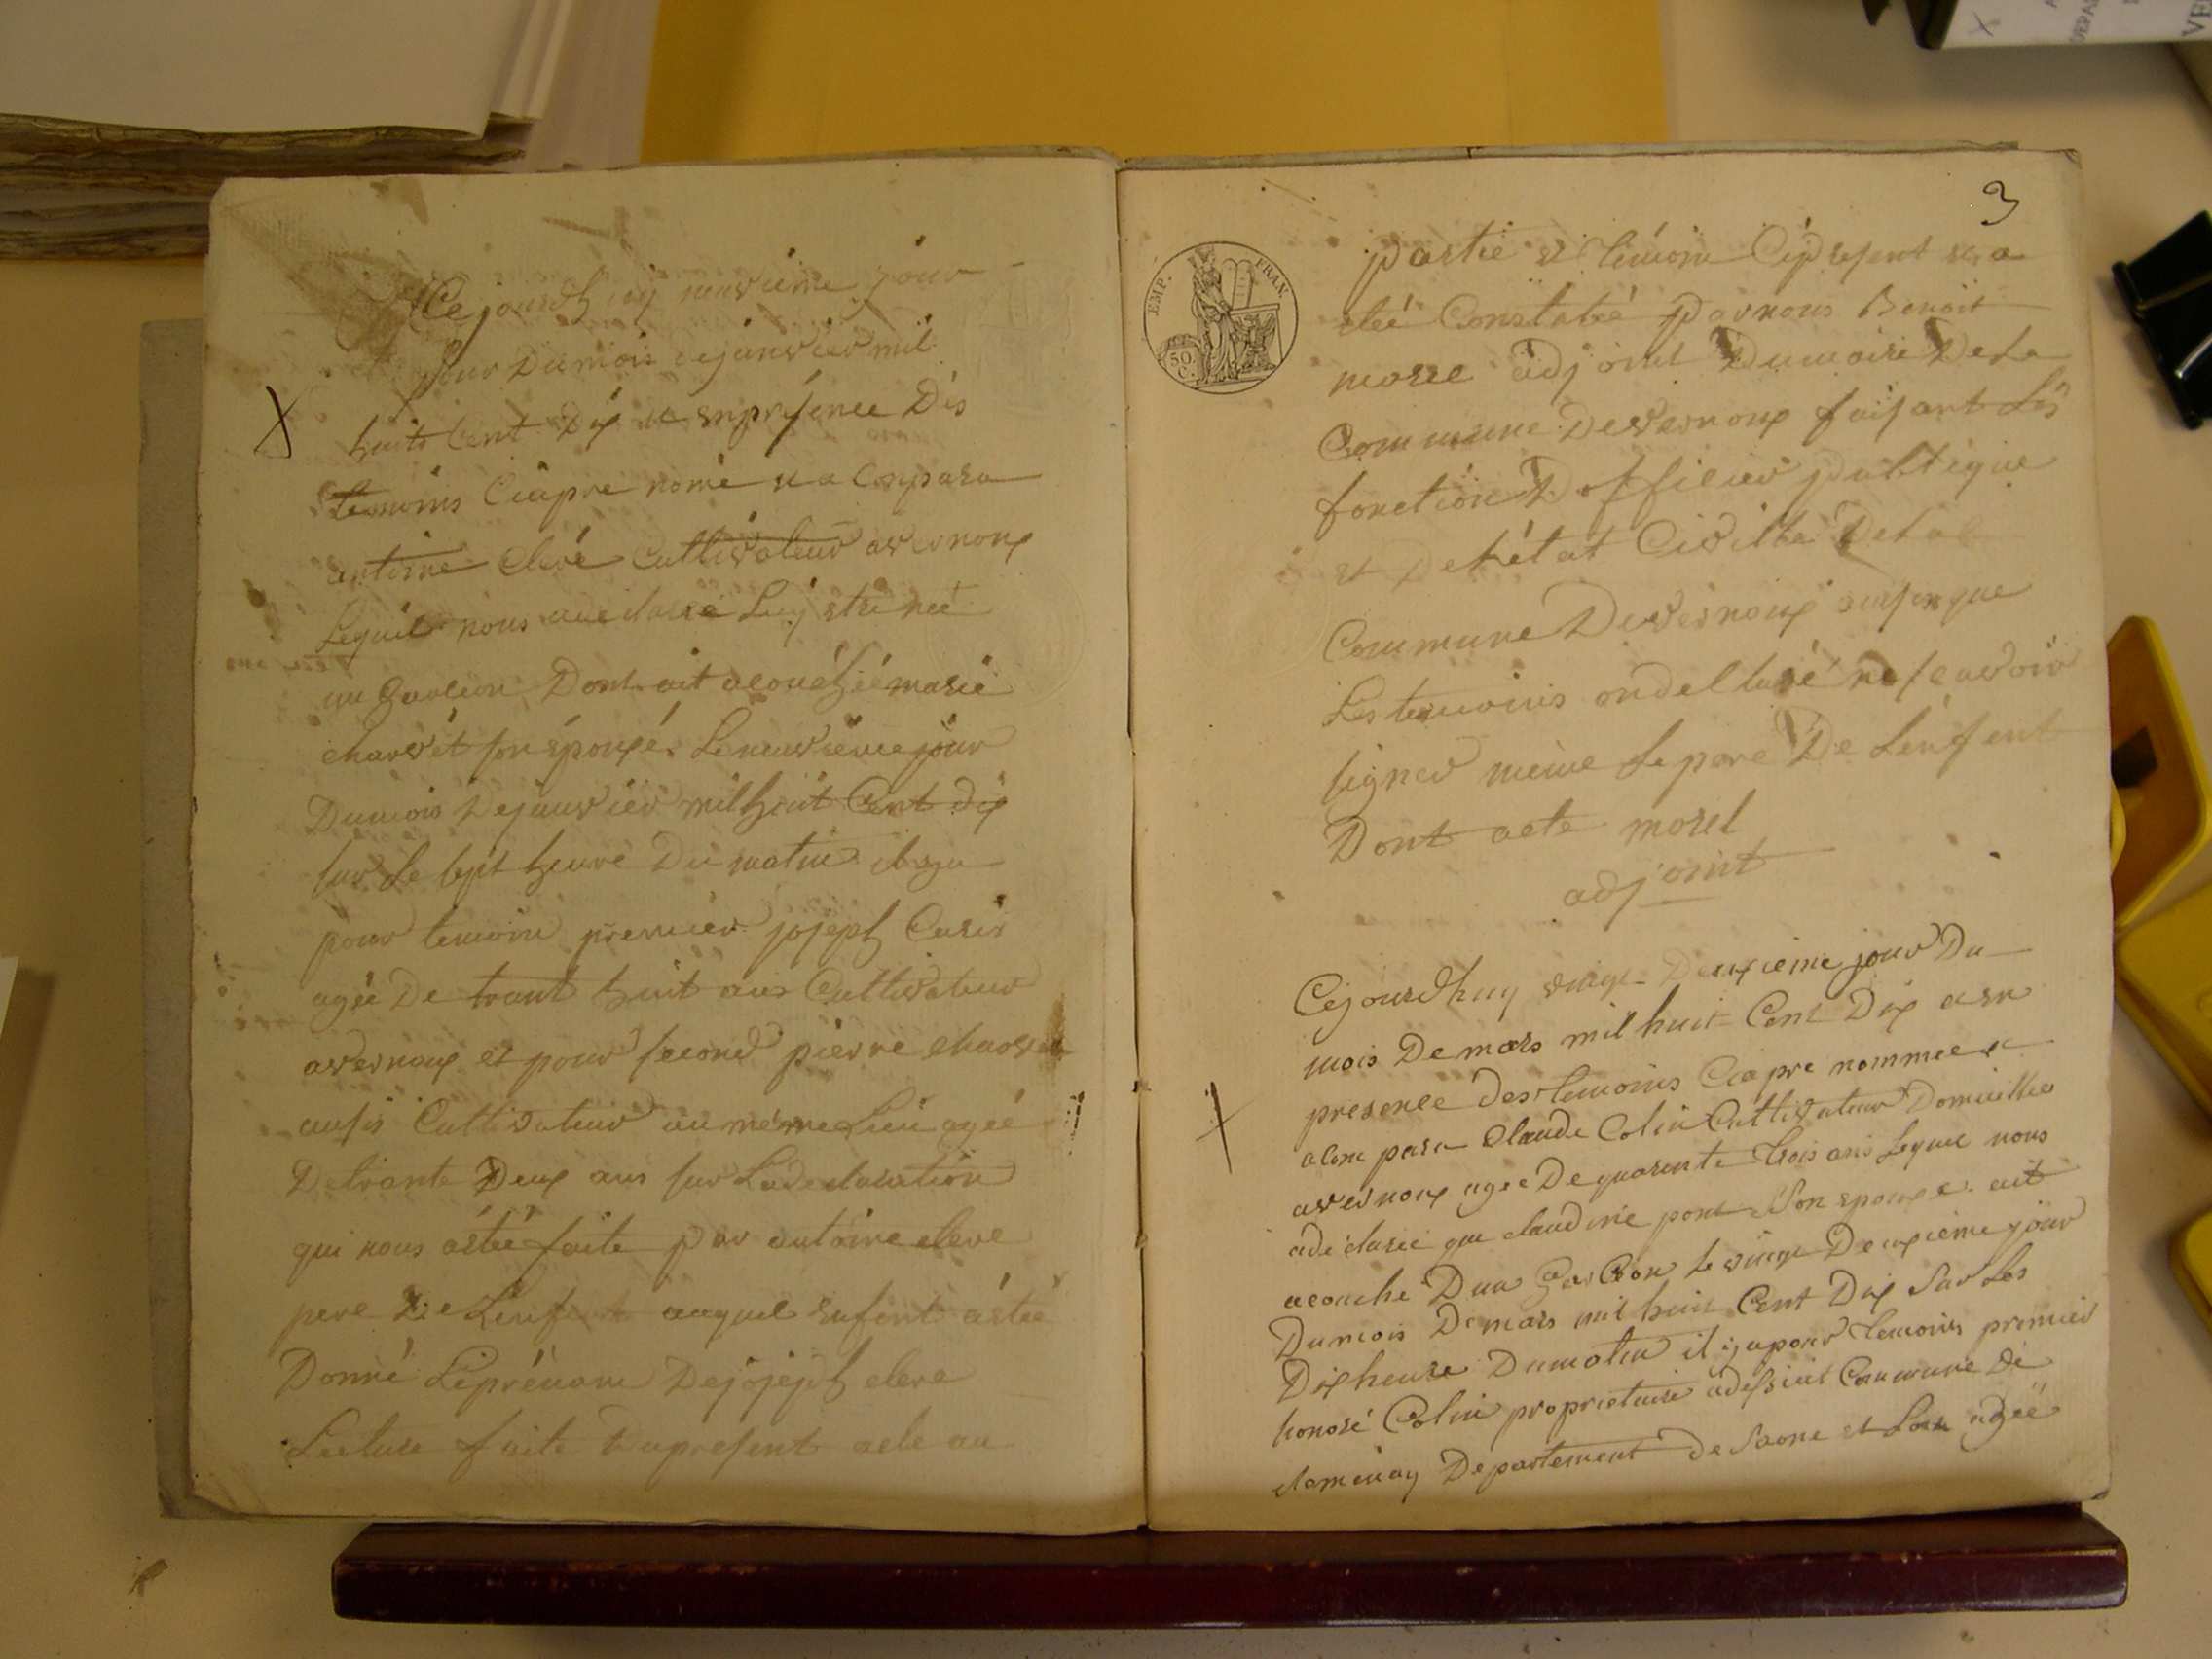 Cejourdhuy neuvième jour
jour Dumois dejanvier mil
huits Cent Dix et enprésence Dès
temoins Ciapre nomé et a Conpara
antoine Clere Cultivateur avernoux
Lequel nous aueclaré Luy etre neé
un Garcon Dont ait acouchée marie
charvét son épouxé Le neuvieme jour
Dumois Dejanvier milhuit Cent dix
sur Le sept heure Du matin ilaya
pour temoin premier joseph Caris
ageé De trant huit ans Cultivateur
avernoux et pour second pierre charvet
aussi Cultivateur au même Lieu ageé
De trante Deux ans sur Ladeclaration
qui nous aétée faite par antoine clere
pere De Lenfent auquel enfent aétée
Donné Leprénom Dejoseph clere
Lecture faite Dupresent acte au
3
EMP. FRAN.
50
C.
partie et témoin Cépresent et a
eteé Constaté Parnous Benoit
morel adjoint Dumaire Dela
Commune Devernoux faisant Les
fonction Dofficier publique
et De Létat Civille Dela
Commune Devernoux ainsinque
Les temoins ondeclaré ne scavoir
signer même Le pere De Lenfent
Dont acte morel
adjoint
Cejourdhuy vingt Deuxieme jour Du
mois De mars mil huit Cent Dix et en
presence des temoins Ciapre nommée et
a Compara Claude Colin Cultivateur Domicillié
avernoux agee De quarente trois ans Lequel nous
adéclaré que claudine pont Son epouxe ait
acouche Dun Garcon Le vingt Deuxieme jour
Dumois De mars mil huit Cent Dix Sur Les
Dix heure Dumatin il ya pour temoins premier
honoré Colin proprietaire Commune De
clomenay Departement De Saone et Loire ageé